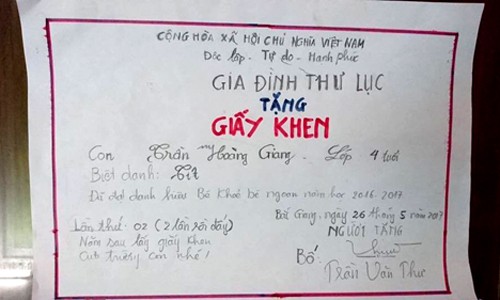 CỘNG HÒA XÃ HỘI CHỦ NGHĨA VIỆT NAM
Độc lập - Tự do - Hạnh phúc
GIA ĐÌNH THƯ LỤC
TẶNG
GIẤY KHEN
Con Trần Hoàng Giang - Lớp 4 tuổi
Biệt danh: Tít
Đã đạt danh hiệu Bé khoẻ bé ngoan năm học 2016-2017
Lần thứ: 02 (2 lần rồi đấy)
Năm sau lấy giấy khen
của trường con nhé!
Bắc Giang, ngày 26 tháng 5 năm 2017
NGƯỜI TẶNG
Bố:
Trần Văn Thư